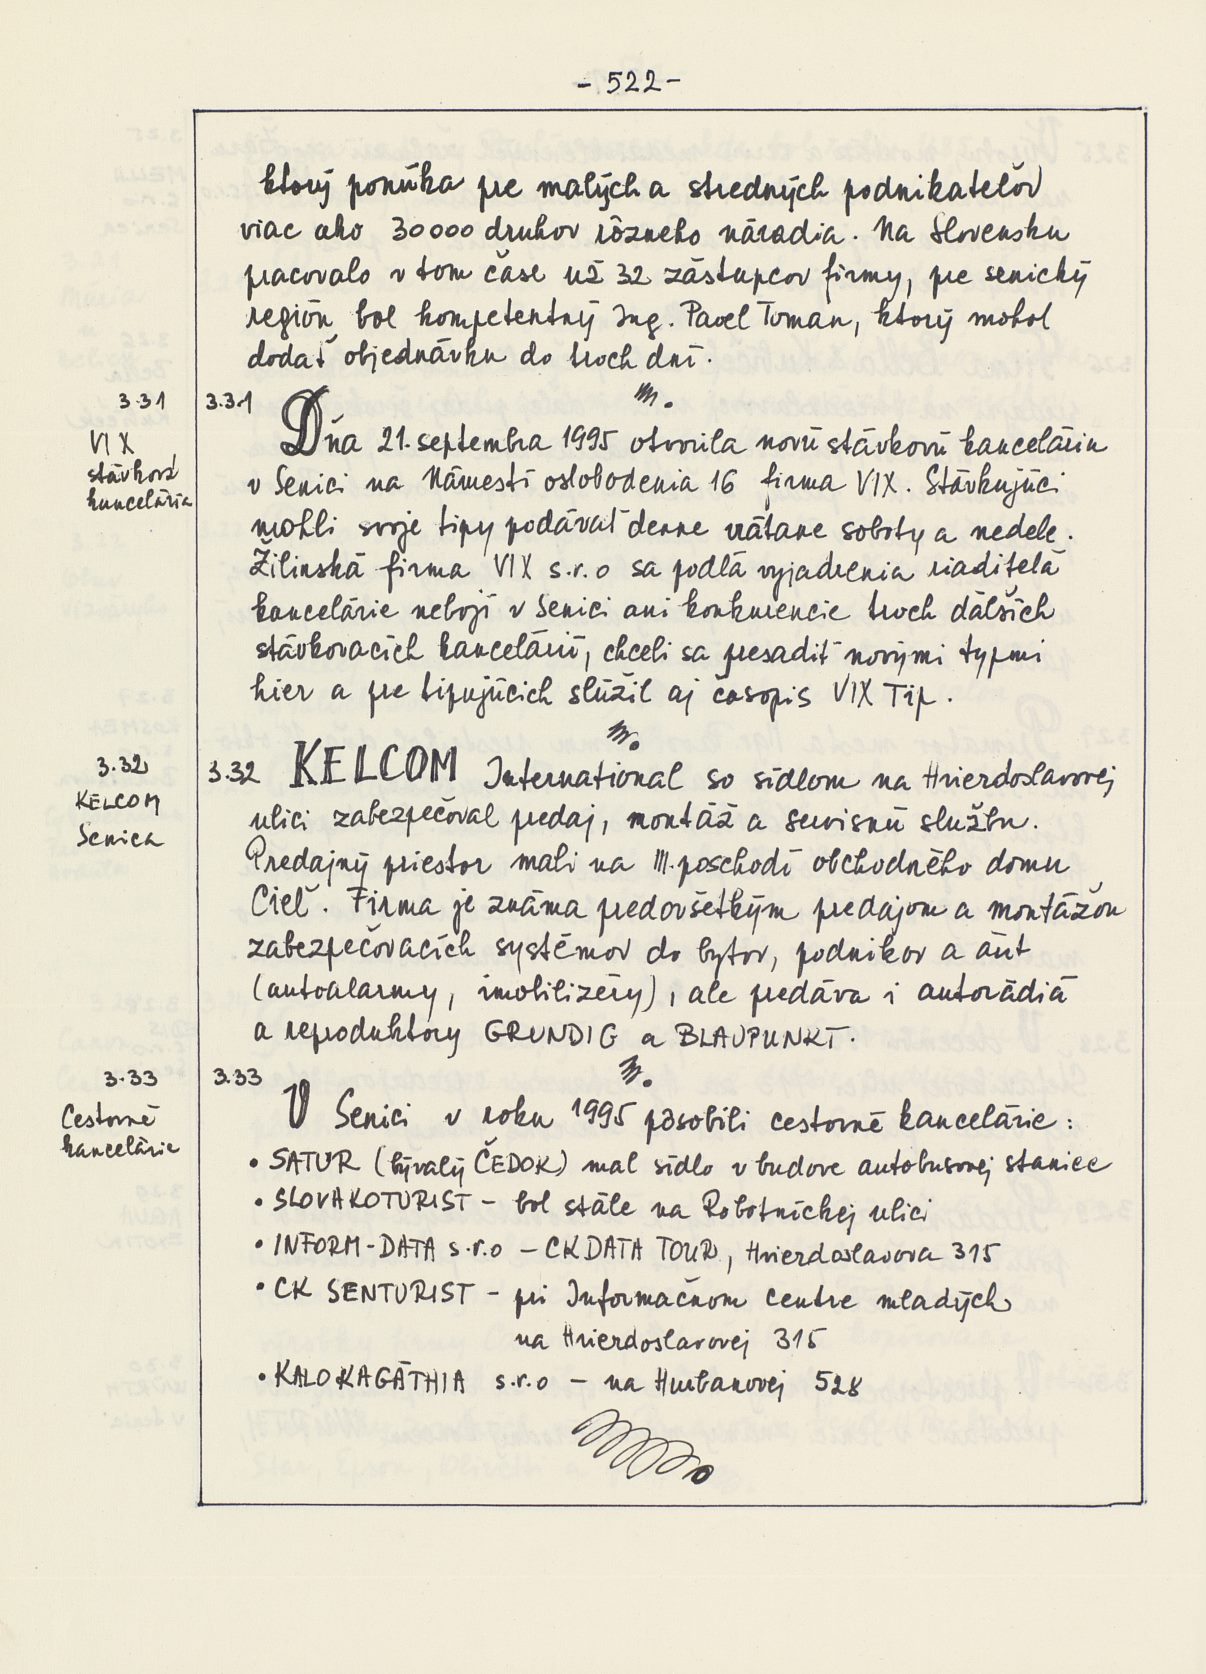 - 522 -
ktorý ponúka pre malých a stredných podnikateľov
viac ako 30 000 druhov rôzneho náradia. Na Slovensku
pracovalo v tom čase už 32 zástupcov firmy, pre senický
región bol kompetentný Ing. Pavel Toman, ktorý mohol
dodať objednávku do troch dní.
3.31
VIX
stávková
kancelária
3.31
Dňa 21. septembra 1995 otvorila novú stávkovú kanceláriu
v Senici na Námestí oslobodenia 16 firma VIX. Stávkujúci
mohli svoje tipy podávať denne vrátane soboty a nedele.
Žilinská firma VIX s.r.o sa podľa vyjadrenia riaditeľa
kancelárie nebojí v Senici ani konkurencie troch ďalších
stávkovacích kancelárií, chceli sa presadiť novými typmi
hier a pre tipujúcich slúžil aj časopis VIX Tip.
3.32
KELCOM
Senica
3.32 KELCOM International so sídlom na Hviezdoslavovej
ulici zabezpečoval predaj, montáž a servisnú službu.
Predajný priestor mali na III. poschodí obchodného domu
Cieľ. Firma je známa predovšetkým predajom a montážou
zabezpečovacích systémov do bytov, podnikov a áut
(autoalarmy, imobilizéry), ale predáva i autorádiá
a reproduktory GRUNDIG a BLAUPUNKT.
3.33
Cestovné
kancelárie
3.33
V Senici v roku 1995 pôsobili cestovné kancelárie:
• SATUR (bývalý ČEDOK) mal sídlo v budove autobusovej stanice
• SLOVAKOTURIST - bol stále na Robotníckej ulici
• INFORM-DATA s.r.o - CK DATA TOUR, Hviezdoslavova 315
• CK SENTURIST - pri Informačnom centre mladých
na Hviezdoslavovej 315
• KALOKAGÁTHIA s.r.o - na Hurbanovej 528